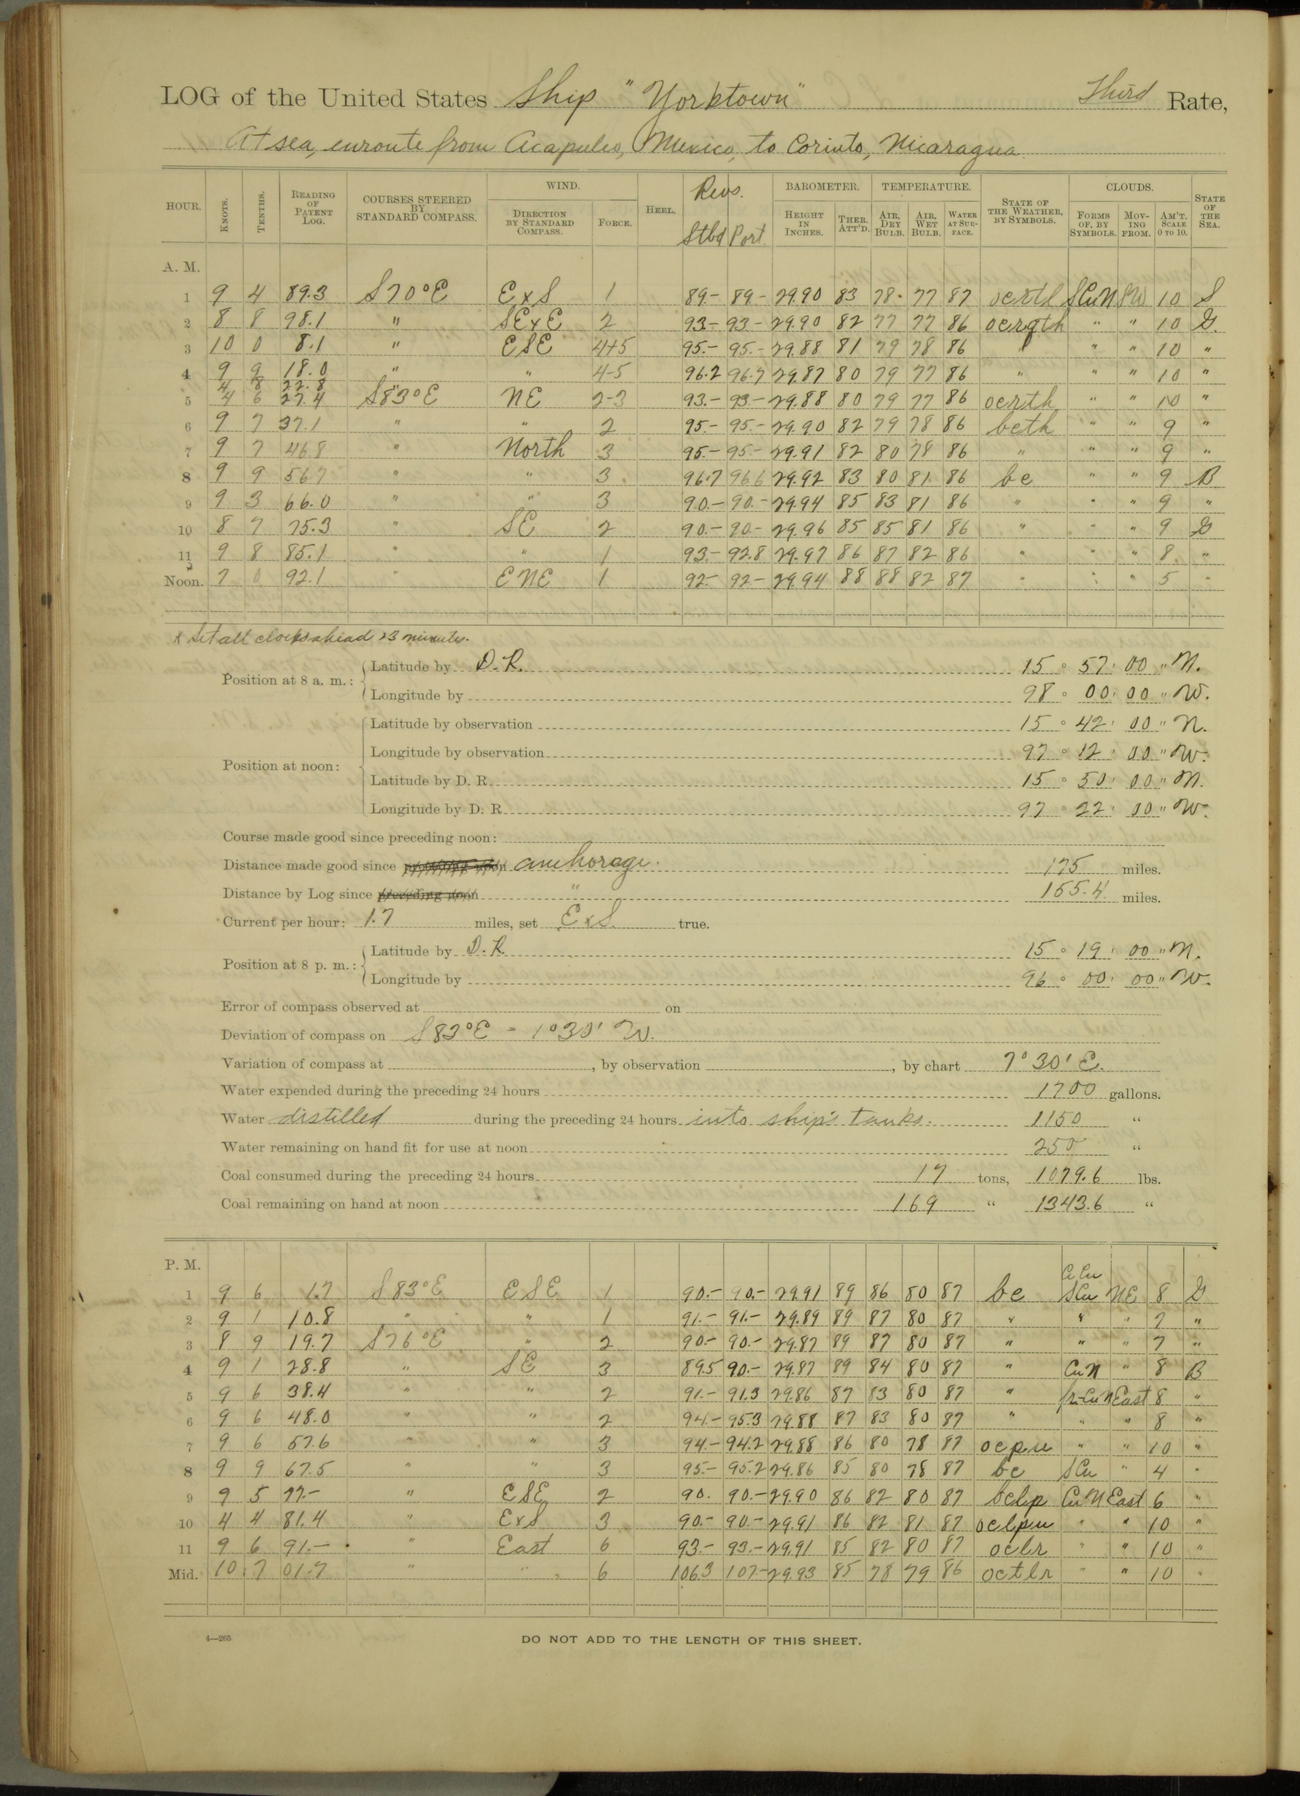 LOG of the United States Ship "Yorktown" Third Rate,
At sea, enroute from Acapulco, Mexico, to Corinto, Nicaragua
HOUR. KNOTS. TENTHS. READING OF PATENT LOG. COURSES STEERED BY STANDARD COMPASS. WIND. DIRECTION BY STANDARD COMPASS. FORCE. HEEL. Revs. Stbd Port BAROMETER. HEIGHT IN INCHES. THER. ATT'D. TEMPERATURE. AIR, DRY BULB. AIR, WET BULB. WATER AT SURFACE. STATE OF THE WEATHER, BY SYMBOLS. CLOUDS. FORMS OF, BY SYMBOLS. MOVING FROM. AM'T. SCALE 0 TO 10. STATE OF THE SEA.
A. M.
1 9 4 89.3 S70°E ExS 1 89.- 89- 29.90 83 78. 77 87 SCuN SW 10 S
2 8 8 98.1 " SExE 2 93.- 93.- 29.90 82 77 77 86 ocrqth " " 10 G.
3 10 0 8.1 " ESE 4+5 95.- 95.- 29.88 81 79 78 86 " " " 10 "
4 9 9 18.0 " " 4-5 96.2 96.7 29.87 80 79 77 86 " " " 10 "
4 8 22.8 "
5 4 6 27.4 S83°E NE 2-3 93.- 93.- 29.88 80 79 77 86 ocrth " " 10 "
6 9 7 37.1 " " 2 95.- 95.- 29.90 82 79 78 86 bcth " " 9 "
7 9 7 46.8 " North 3 95.- 95.- 29.91 82 80 78 86 " " " 9 "
8 9 9 56.7 " " 3 96.7 96.6 29.92 83 80 81 86 bc " " 9 B
9 9 3 66.0 " " 3 90.- 90.- 29.94 85 83 81 86 " " " 9 "
10 8 7 75.3 " SE 2 90.- 90.- 29.96 85 85 81 86 " " " 9 G
11 9 8 85.1 " " 1 93.- 92.8 29.97 86 87 82 86 " " " 8 "
Noon. 7 0 92.1 " ENE 1 92- 92- 29.94 88 88 82 87 " " " 5 "
x Set all clocks ahead 23 minutes.
Position at 8 a. m.: Latitude by D.R. 15 ° 57 ' 00 " N.
Longitude by 98 ° 00 ' 00 " W.
Position at noon: Latitude by observation 15 ° 42 ' 00 " N.
Longitude by observation 97 ° 12 ' 00 " W.
Latitude by D. R. 15 ° 50 ' 00 " N.
Longitude by D. R. 97 ° 22 ' 00 " W.
Course made good since preceding noon:
Distance made good since preceding noon anchorage. 175 miles.
Distance by Log since preceding noon " 165.4 miles.
Current per hour: 1.7 miles, set ExS. true.
Position at 8 p. m.: Latitude by D.R. 15 ° 19 ' 00 " N.
Longitude by 96 ° 00 ' 00 " W.
Error of compass observed at on
Deviation of compass on S83°E - 1°30' W.
Variation of compass at , by observation , by chart 7° 30' E.
Water expended during the preceding 24 hours 1700 gallons.
Water distilled during the preceding 24 hours into ship's tanks. 1150 "
Water remaining on hand fit for use at noon 250 "
Coal consumed during the preceding 24 hours 17 tons, 1079.6 lbs.
Coal remaining on hand at noon 169 " 1343.6 "
P. M.
1 9 6 1.7 S83°E ESE 1 90.- 90.- 29.91 89 86 80 87 bc CiCu SCu NE 8 G
2 9 1 10.8 " " 1 91.- 91.- 29.89 89 87 80 87 " " " 7 "
3 8 9 19.7 S76°E " 2 90.- 90.- 29.87 89 87 80 87 " " " 7 "
4 9 1 28.8 " SE 3 89.5 90.- 29.87 89 84 80 87 " CuN " 8 B
5 9 6 38.4 " " 2 91.- 91.3 29.86 87 83 80 87 " East 8 "
6 9 6 48.0 " " 2 94.- 95.3 29.88 87 83 80 87 " " " 8 "
7 9 6 57.6 " " 3 94.- 94.2 29.88 86 80 78 87 ocpu " " 10 "
8 9 9 67.5 " " 3 95.- 95.2 29.86 85 80 78 87 bc SCu " 4 "
9 9 5 77.- " ESE 2 90. 90.- 29.90 86 82 80 87 bclp CuN East 6 "
10 4 4 81.4 " ExS 3 90.- 90.- 29.91 86 82 81 87 oclpu " " 10 "
11 9 6 91.- " East 6 93.- 93.- 29.91 85 82 80 87 oclr " " 10 "
Mid. 10 7 01.7 " " 6 106.3 107- 29.93 85 78 79 86 octlr " " 10 "
4—265
DO NOT ADD TO THE LENGTH OF THIS SHEET.